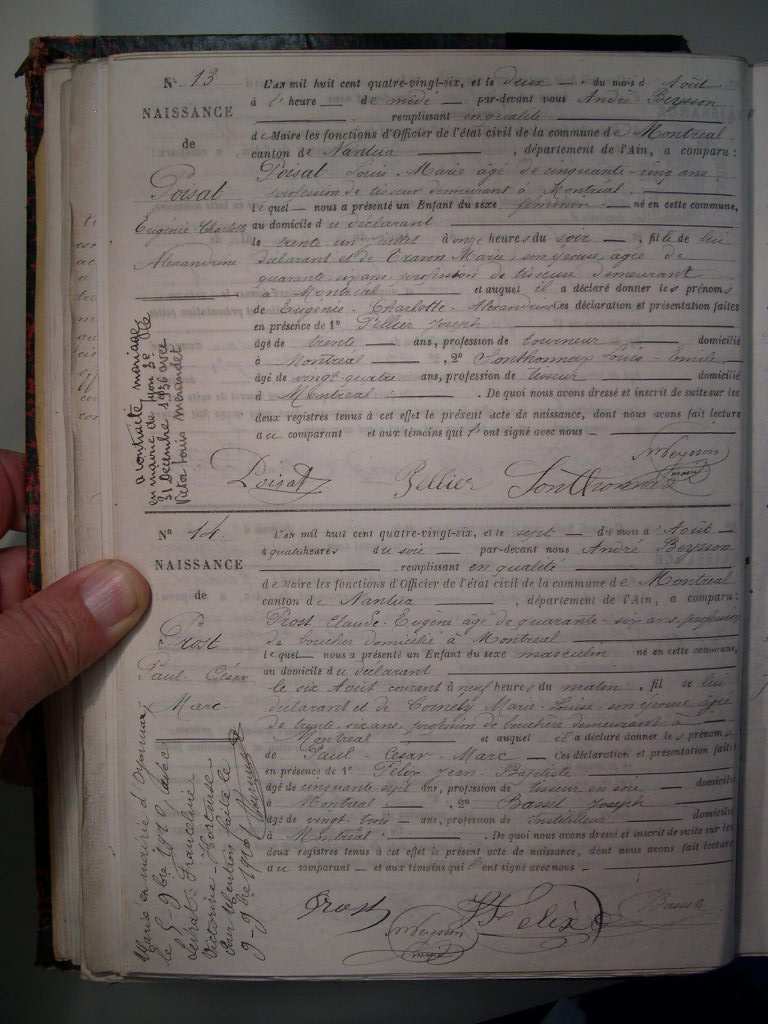 N° 13
NAISSANCE
de
Poisat
Eugénie Charlotte
Alexandrine
a contracté mariage
en mairie de Lyon 3e
31 Décembre 1936 avec
Victor Louis
L'AN mil huit cent quatre-vingt-six, et le deux du mois d'Août
à l'heure de midi par-devant nous André Beysson
remplissant en qualité
de Maire les fonctions d'Officier de l'état civil de la commune de Montréal
canton de Nantua, département de l'Ain, a comparu :
Poisat Louis Marie âgé de cinquante-cinq ans
profession de tisseur demeurant à Montréal.
lequel nous a présenté un Enfant du sexe féminin né en cette commune,
au domicile du déclarant
le trente un Juillet à onze heures du soir, fille de lui
déclarant et de Marie, son épouse, âgée de
quarante six ans, profession de tisseuse demeurant
à Montréal et auquel il a déclaré donner les prénoms
de Eugénie-Charlotte-Alexandrine Ces déclaration et présentation faites
en présence de 1° Pellier Joseph
âgé de trente ans, profession de tourneur domicilié
à Montréal, 2° Sonthonnax Louis-Emile
âgé de vingt-quatre ans, profession de tisseur domicilié
à Montréal. De quoi nous avons dressé et inscrit de suite sur les
deux registres tenus à cet effet le présent acte de naissance, dont nous avons fait lecture
au comparant et aux témoins qui ont signé avec nous
Poisat Pellier Sonthonnax
N° 14
NAISSANCE
de
Prost
Paul César
Marc
Marié en mairie d'Oyonnax
le 5-9bre 1910, avec
Franceline
Victorine-Hortense
Pour mention faite le
9-9bre 1910
L'AN mil huit cent quatre-vingt-six, et le sept du mois d'Août
à quatre heures du soir par-devant nous André Beysson
remplissant en qualité
de Maire les fonctions d'Officier de l'état civil de la commune de Montréal
canton de Nantua, département de l'Ain, a comparu :
Prost Claude-Eugène âgé de quarante-six ans, profession
de boucher domicilié à Montréal
lequel nous a présenté un Enfant du sexe masculin né en cette commune,
au domicile du déclarant
le six Août courant à neuf heures du matin, fils de lui
déclarant et de Cornély Marie-Louise son épouse âgée
de trente-six ans, profession de bouchère demeurant à
Montréal et auquel il a déclaré donner les prénoms
de Paul-César-Marc Ces déclaration et présentation faites
en présence de 1° Félix Jean-Baptiste
âgé de cinquante sept ans, profession de tisseur en soie domicilié
à Montréal, 2° Basset Joseph
âgé de vingt trois ans, profession de domicilié
à Montréal. De quoi nous avons dressé et inscrit de suite sur les
deux registres tenus à cet effet le présent acte de naissance, dont nous avons fait lecture
au comparant et aux témoins qui ont signé avec nous
Prost Félix Basset